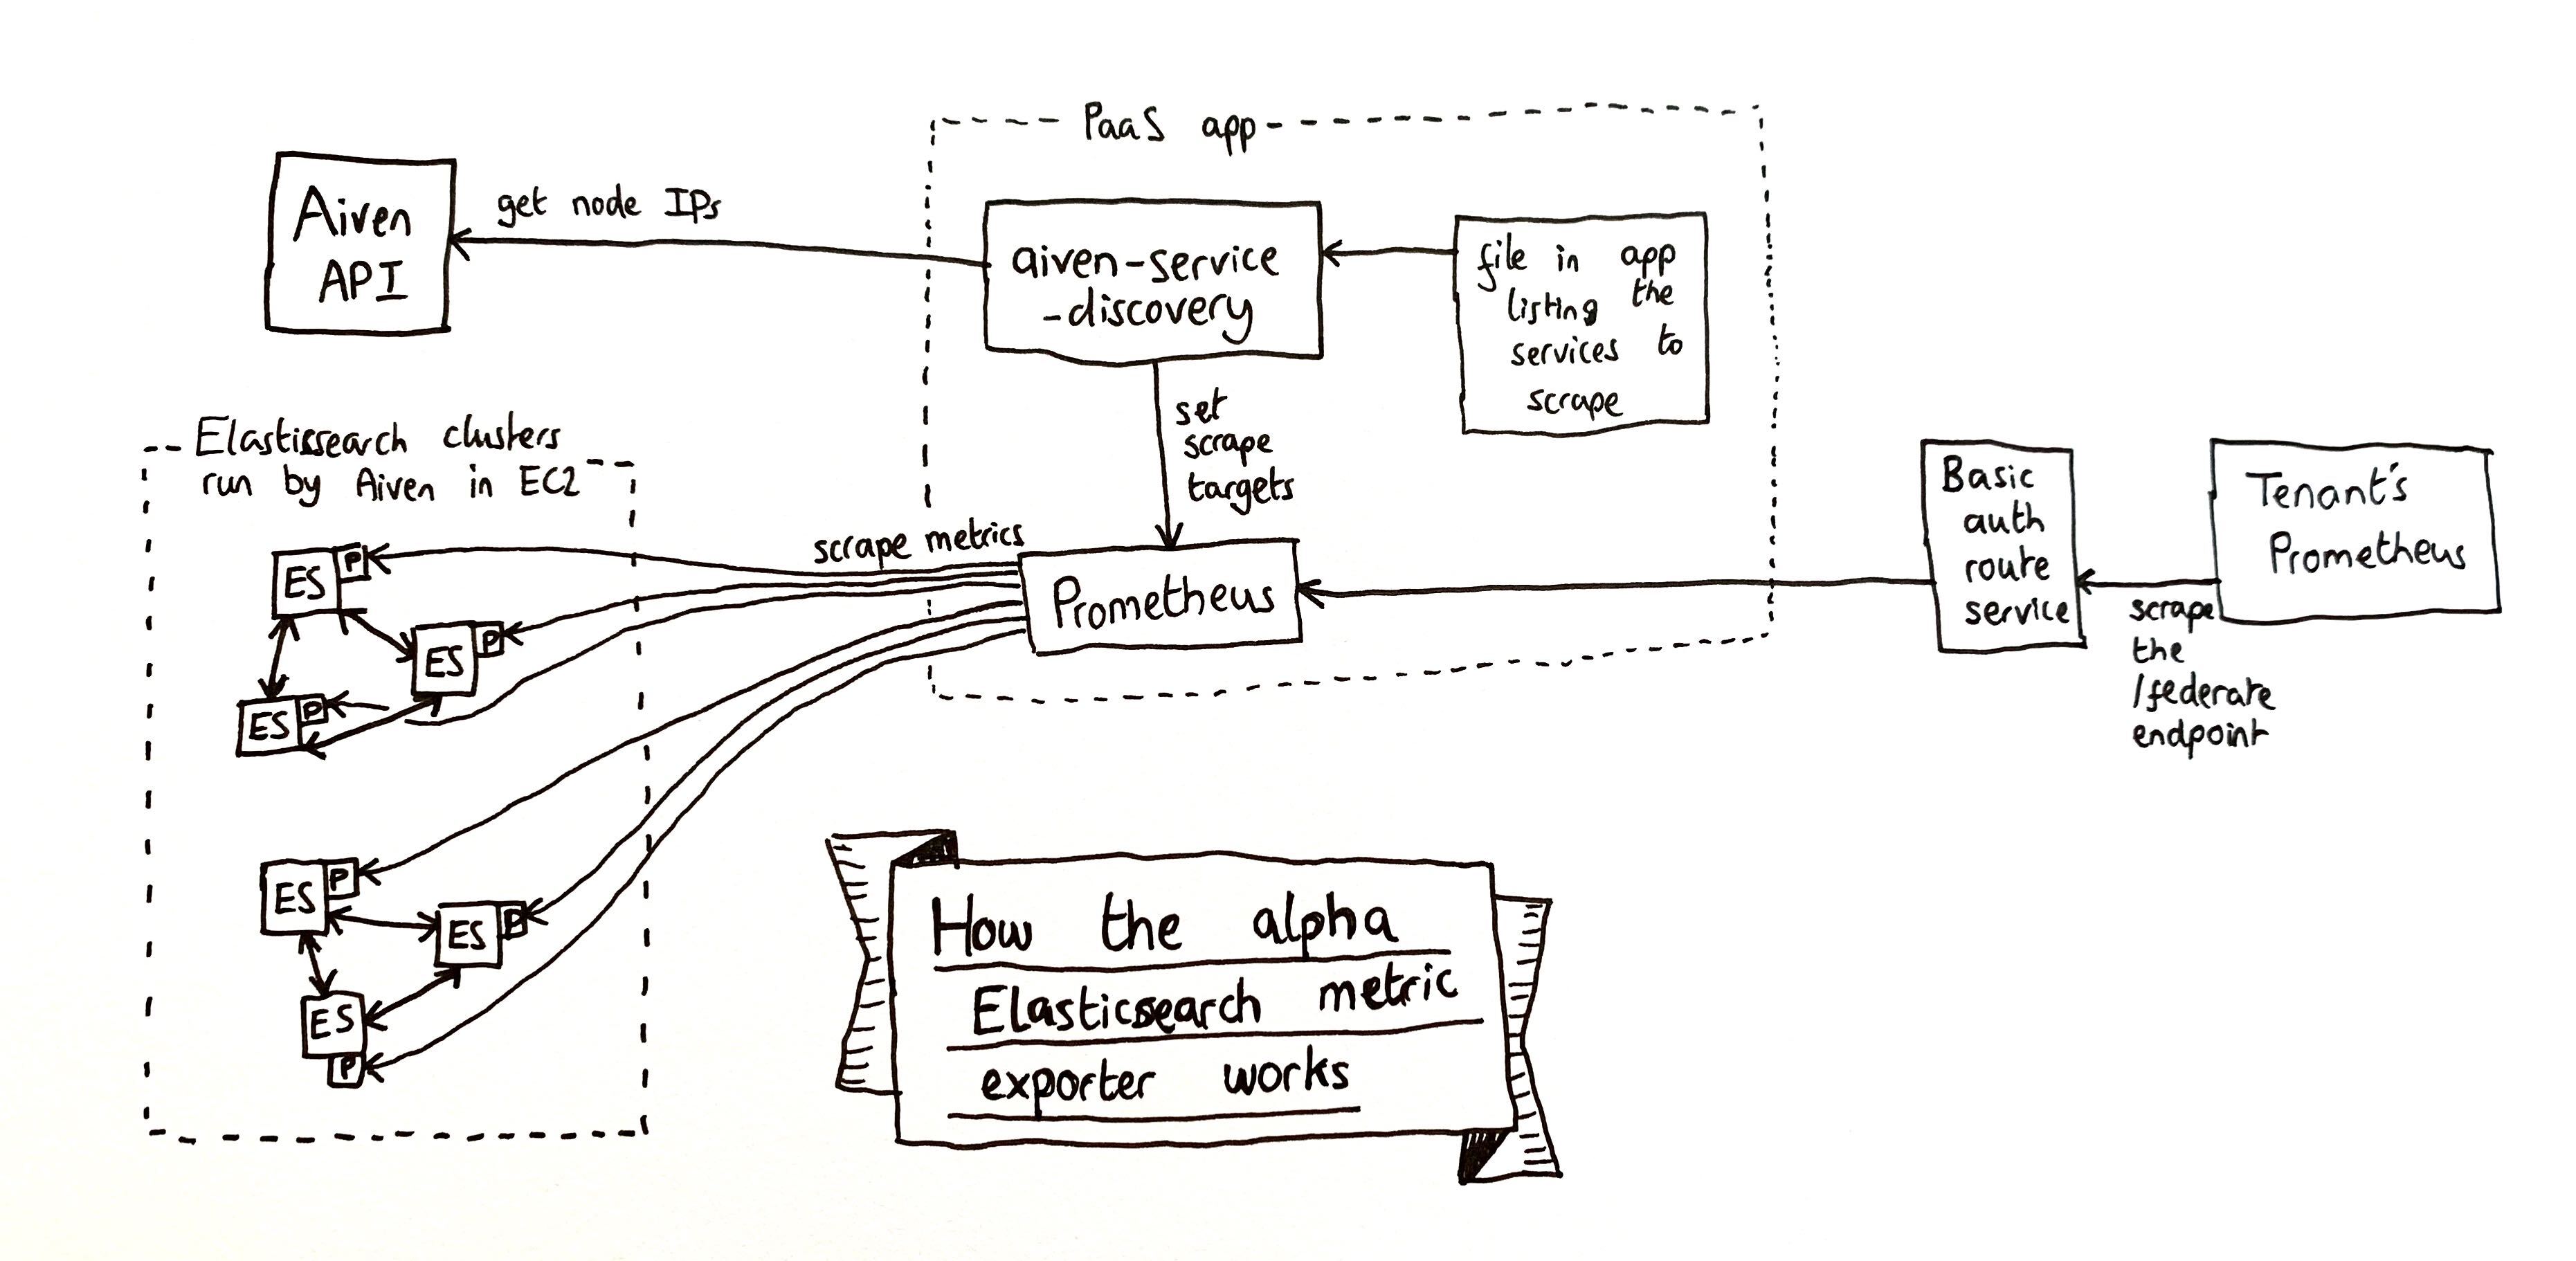 PaaS app
Aiven
API
get node IPs
aiven-service
-discovery
file in app
listing the
services to
scrape
set
scrape
targets
Elasticsearch clusters
run by Aiven in EC2
scrape metrics
Prometheus
Basic
auth
route
service
Tenant's
Prometheus
scrape
the
/federate
endpoint
ES P
ES P
ES P
ES P
ES P
ES
P
How the alpha
Elasticsearch metric
exporter works